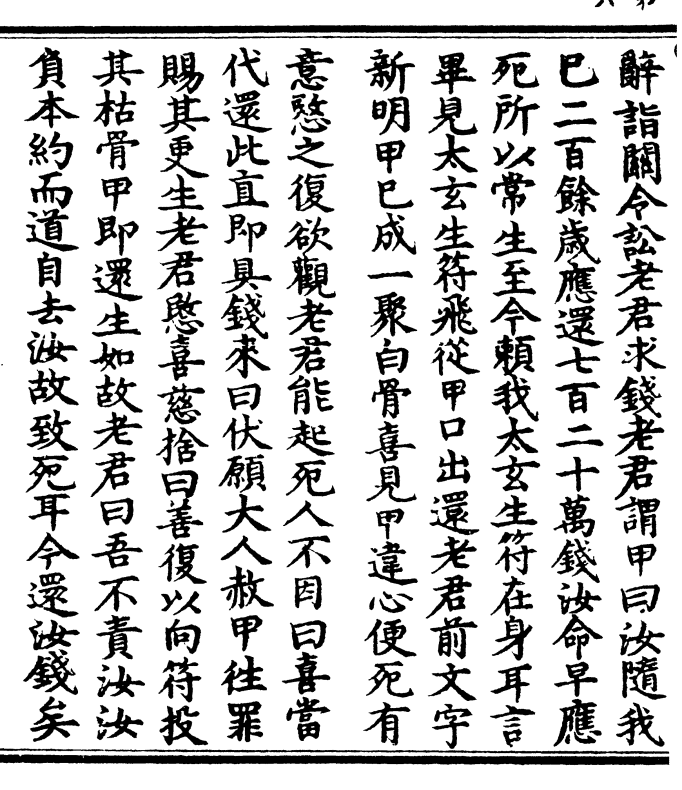 辭詣關令訟老君求錢老君謂甲曰汝隨我
巳二百餘歲應還七百二十萬錢汝命早應
死所以常生至今賴我太玄生符在身耳言
畢見太玄生符飛從甲口出還老君前文字
新明甲巳成一聚白骨喜見甲違心便死有
意愍之復欲觀老君能起死人不因曰喜當
代還此直即具錢來曰伏願大人赦甲往罪
賜其更生老君愍喜慈捨曰善復以向符投
其枯骨甲即還生如故老君曰吾不責汝汝
負本約而道自去汝故致死耳今還汝錢矣